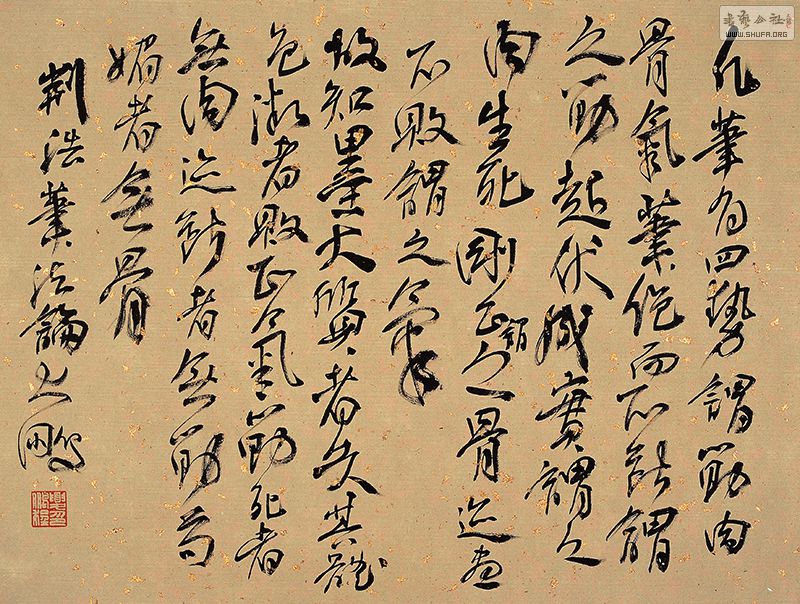 書藝公社
WWW.SHUFA.ORG
凡筆為四勢謂筋肉
骨氣筆絕而不斷謂
之筋起伏成實謂之
肉生死剛正謂之骨迹畫
不敗謂之氣
故知墨大質者失其體
色微者敗正氣筋死者
無肉迹斷者無筋苟
媚者無骨
荆浩筆法論大鵬